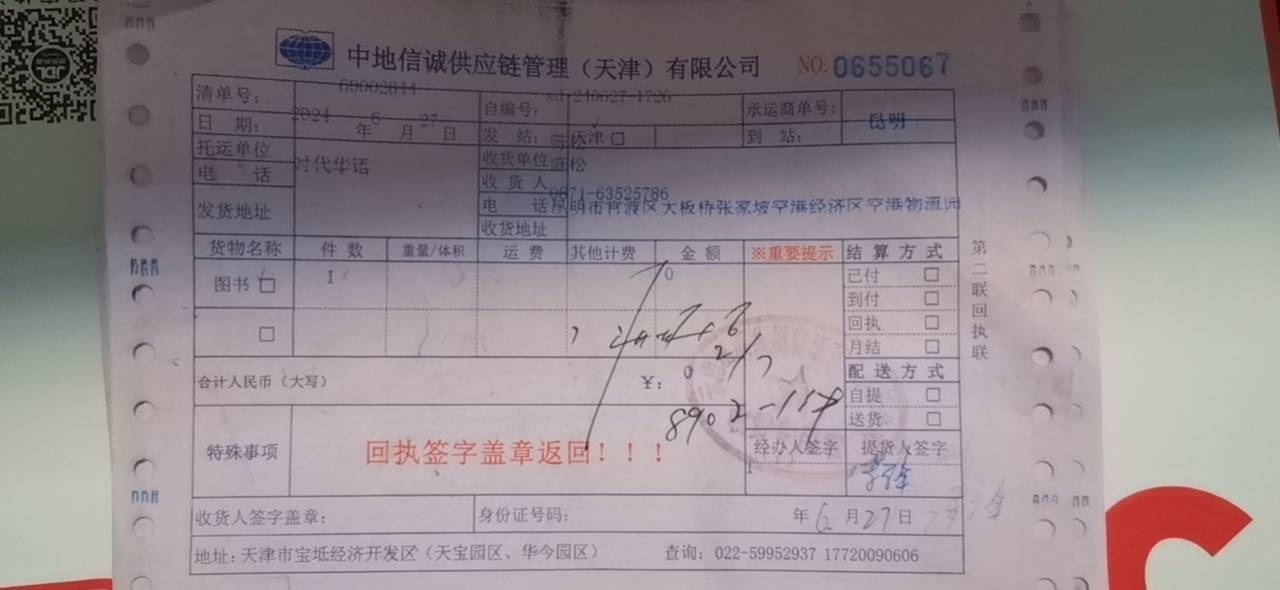 中地信诚供应链管理（天津）有限公司 NO.0655067
清单号： 69002644 自编号： sd-240627-1726 承运商单号：
日 期： 2024 年 6 月 27 日 发 站： 天津 □ 到 站： 昆明
托运单位 时代华语 收货单位
电 话 收 货 人 松
发货地址 电 话 0871-63525786
收货地址 昆明市官渡区大板桥张家坡空港经济区空港物流园
货物名称 件 数 重量/体积 运 费 其他计费 金 额 ※重要提示 结 算 方 式
图书 □ 1 0 已付 □
到付 □
□ 回执 □
月结 □
2/7
合计人民币（大写） ￥： 0 配 送 方 式
自提 □
8902-117
送货 □
特殊事项 回执签字盖章返回！！！ 经办人签字 提货人签字
1
收货人签字盖章： 身份证号码： 年 6 月 27 日
地址：天津市宝坻经济开发区（天宝园区、华今园区） 查询：022-59952937 17720090606
第二联回执联